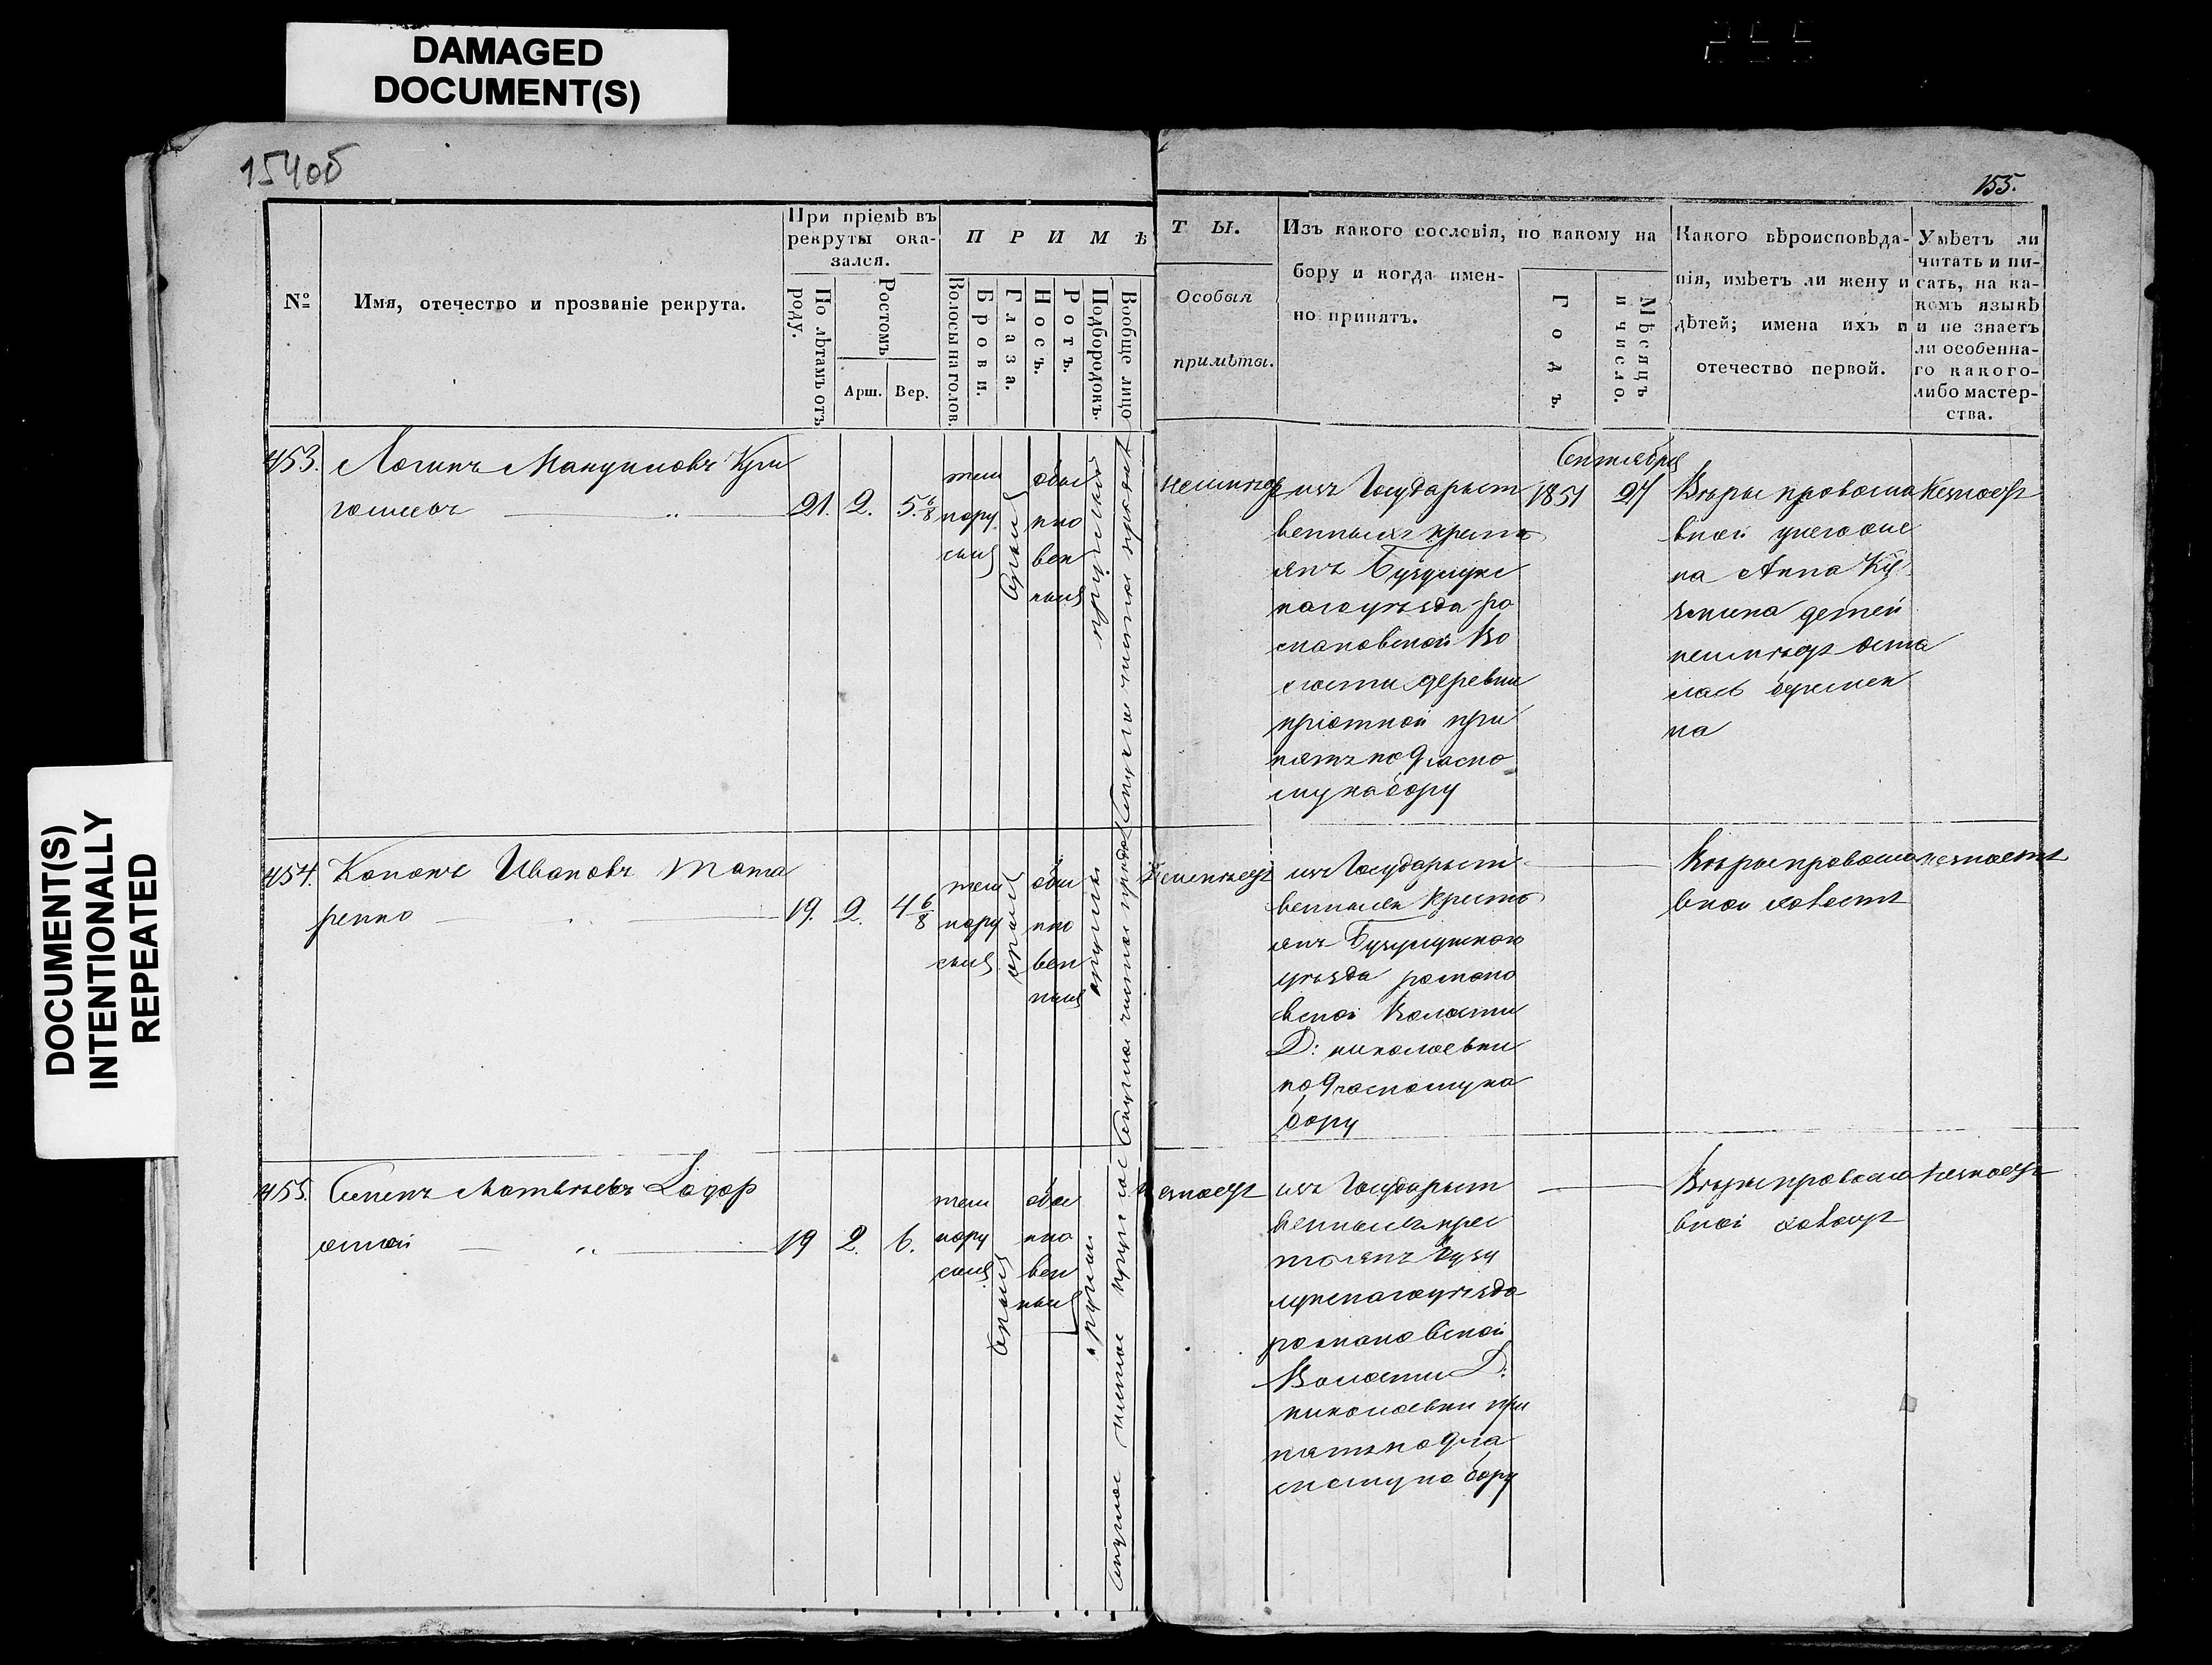 DAMAGED
DOCUMENT(S)
DOCUMENT(S)
INTENTIONALLY
REPEATED
154об
155.
№
Имя, отечество и прозваніе рекрута.
При пріемѣ въ
рекруты ока-
зался.
По лѣтамъ отъ
роду.
Ростомъ
Арш.
Вер.
П Р И М Ѣ
Волосы на голов.
Брови.
Глаза.
Носъ.
Ротъ.
Подбородокъ.
Вообще лицо
Т Ы.
Особыя
примѣты.
Изъ какого сословія, по какому на
бору и когда имен-
но принятъ.
Годъ.
Мѣсяцъ
и число.
Какого вѣроисповѣда-
нія, имѣетъ ли жену и
дѣтей; имена ихъ и
отечество первой.
Умѣетъ ли
читать и пи-
сать, на ка-
комъ языкѣ
и не знаетъ
ли особенна-
го какого-
либо мастер-
ства.
453.
Логинъ
21. 2. 5. 6/8
тем
нору
сыя
Сѣрыя
обык
но
вен
ныя
неимѣетъ
изъ Государст
венныхъ кресть
янъ Бузулукс
кагоуѣзда ро
мановской Во
лости деревни
пріютной при
нятъ по 9 частно
му набору
1851
Сентября
27
Вѣры правосла
вной унегоже
на Анна Ку
деминa детей
неимѣетъ оста
лась беремен
на
Незнаетъ
454.
Кононъ Ивановъ Тата
ренко
19. 2. 4 6/8
тем
нору
сыя
сѣрыя
обык
но
вен
ныя
круглый
Неимѣетъ
изъ Государст
венныхъ Кресть
янъ Бузулускаго
уѣзда романо
вской Волости
Д: николаевки
по 9 частному на
бору
Вѣры правосла
вной холостъ
незнаетъ
455.
19 2. 6.
тем
нору
сыя
Сѣрыя
обык
но
вен
ныя
круглый
изъ Государст
венныхъ крес
тьянъ Бузу
лукскагоуѣзда
романовской
Волости Д:
николаевки при
нятъ по 9 ча
стному набору
Вѣры правосла
вной холостъ
Незнаетъ